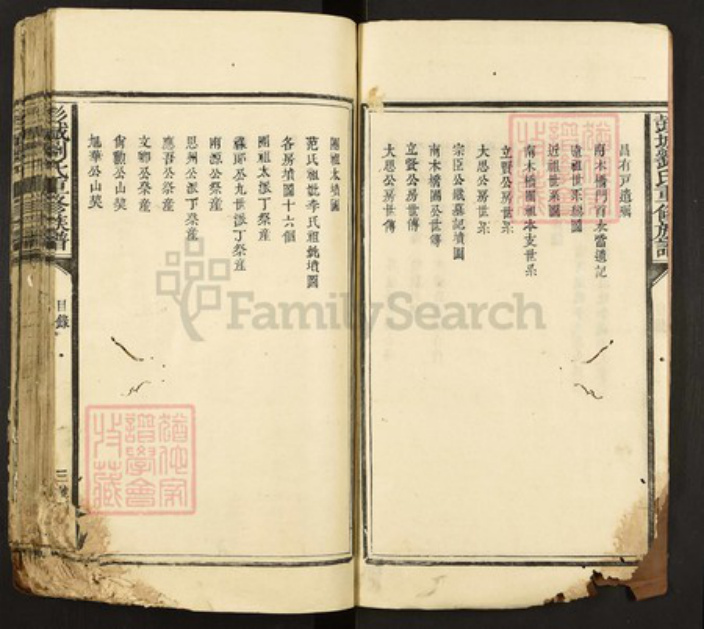 彭城劉氏重修族譜
昌有戸遺稿
南木橋門首水當遺記
遠祖世系圖
近祖世系圖
南木橋團祖本支世系
立賢公房世系
大恩公房世系
宗臣公鐵墓記墳圖
南木橋團公世傳
立賢公房世傳
大恩公房世傳
團祖太墳圖
范氏祖妣李氏祖妣墳圖
各房墳圖十六個
團祖太派丁祭產
九世派丁祭產
南源公祭產
思州公派丁祭產
應吾公祭產
文卿公祭產
尚勳公山契
旭華公山契
彭城劉氏重修族譜
目錄
三
譜學會
收藏
FamilySearch